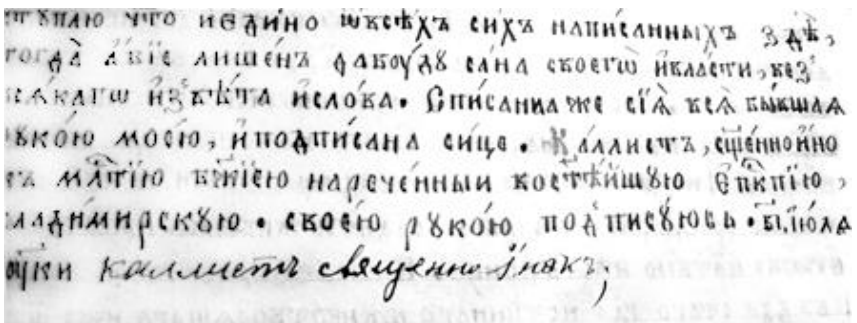 что неєди́но ѿвсѣ́хъ си́хъ написанныхъ здѣ̀,
тогда̀ а҆́бїе лише́нъ да бꙋ́дꙋ са́на своегѡ̀ и҆вла́сти, без̾
всѧ́кагѡ и҆звѣ́та исло́ва. Списанїа же сїѧ̀ всѧ̀ бы́вшаѧ
рꙋко́ю моє́ю, и҆подписана си́це. Ка́ллистъ, сщ҃е́нноино
мл҃тїю бж҃їею нарече́нныи
влади́мирскꙋю. свое́ю рꙋко́ю подписꙋюсь.
каллистъ священно инокъ,